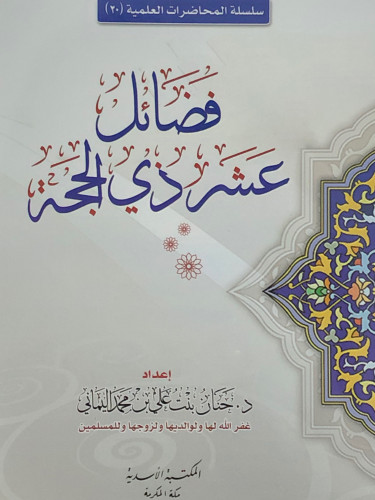 سلسلة المحاضرات العلمية (٢٠)
فضائل
عشر ذي الحجة
إعداد
د. حنان بنت علي بن محمد اليماني
غفر الله لها ولوالديها ولزوجها وللمسلمين
المكتبة الأسدية
مكة المكرمة